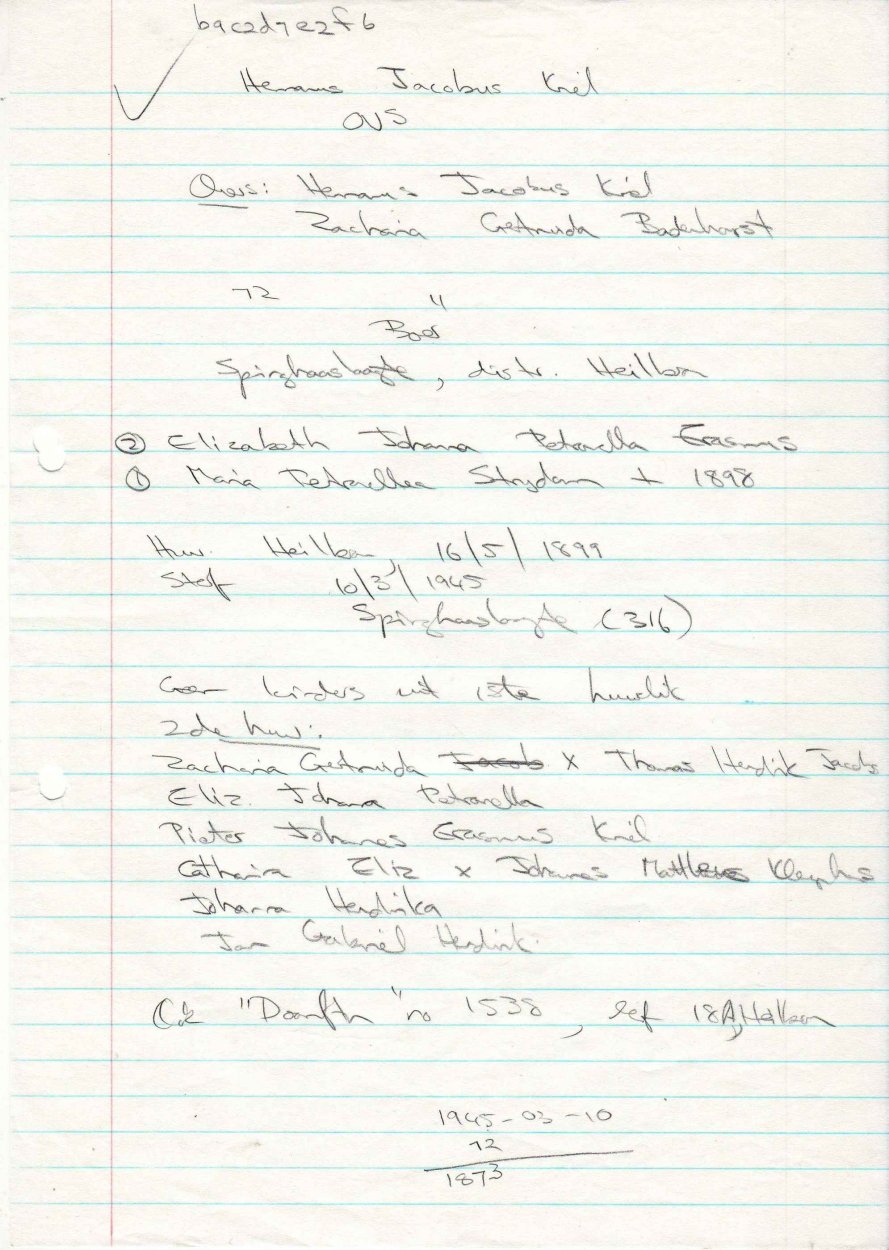 b9c2d7e2f6
Hermanus Jacobus Kriel
OVS
Ouers: Hermanus Jacobus Kriel
Zacharia Gertruida Badenhorst
72 "
Boer
Spioghaaslaagte, distr. Heilbron
② Elizabeth Johanna Petronella Erasmus
① Maria Petronella Strydom + 1898
Huw. Heilbron, 16/5/1899
Sterf 10/3/1945
(316)
Geen kinders uit 1ste huwelik
2de huw:
Zacharia Gertruida Jacobs x Thomas Hendrik Jacobs
Eliz. Johanna Petronella
Pieter Johannes Erasmus Kriel
Catharina Eliz x Johannes Mattheus
Johanna Hendrika
Jan Gabriël Hendrik
" no 1538, 18A, Heilbron
1945-03-10
72
1873